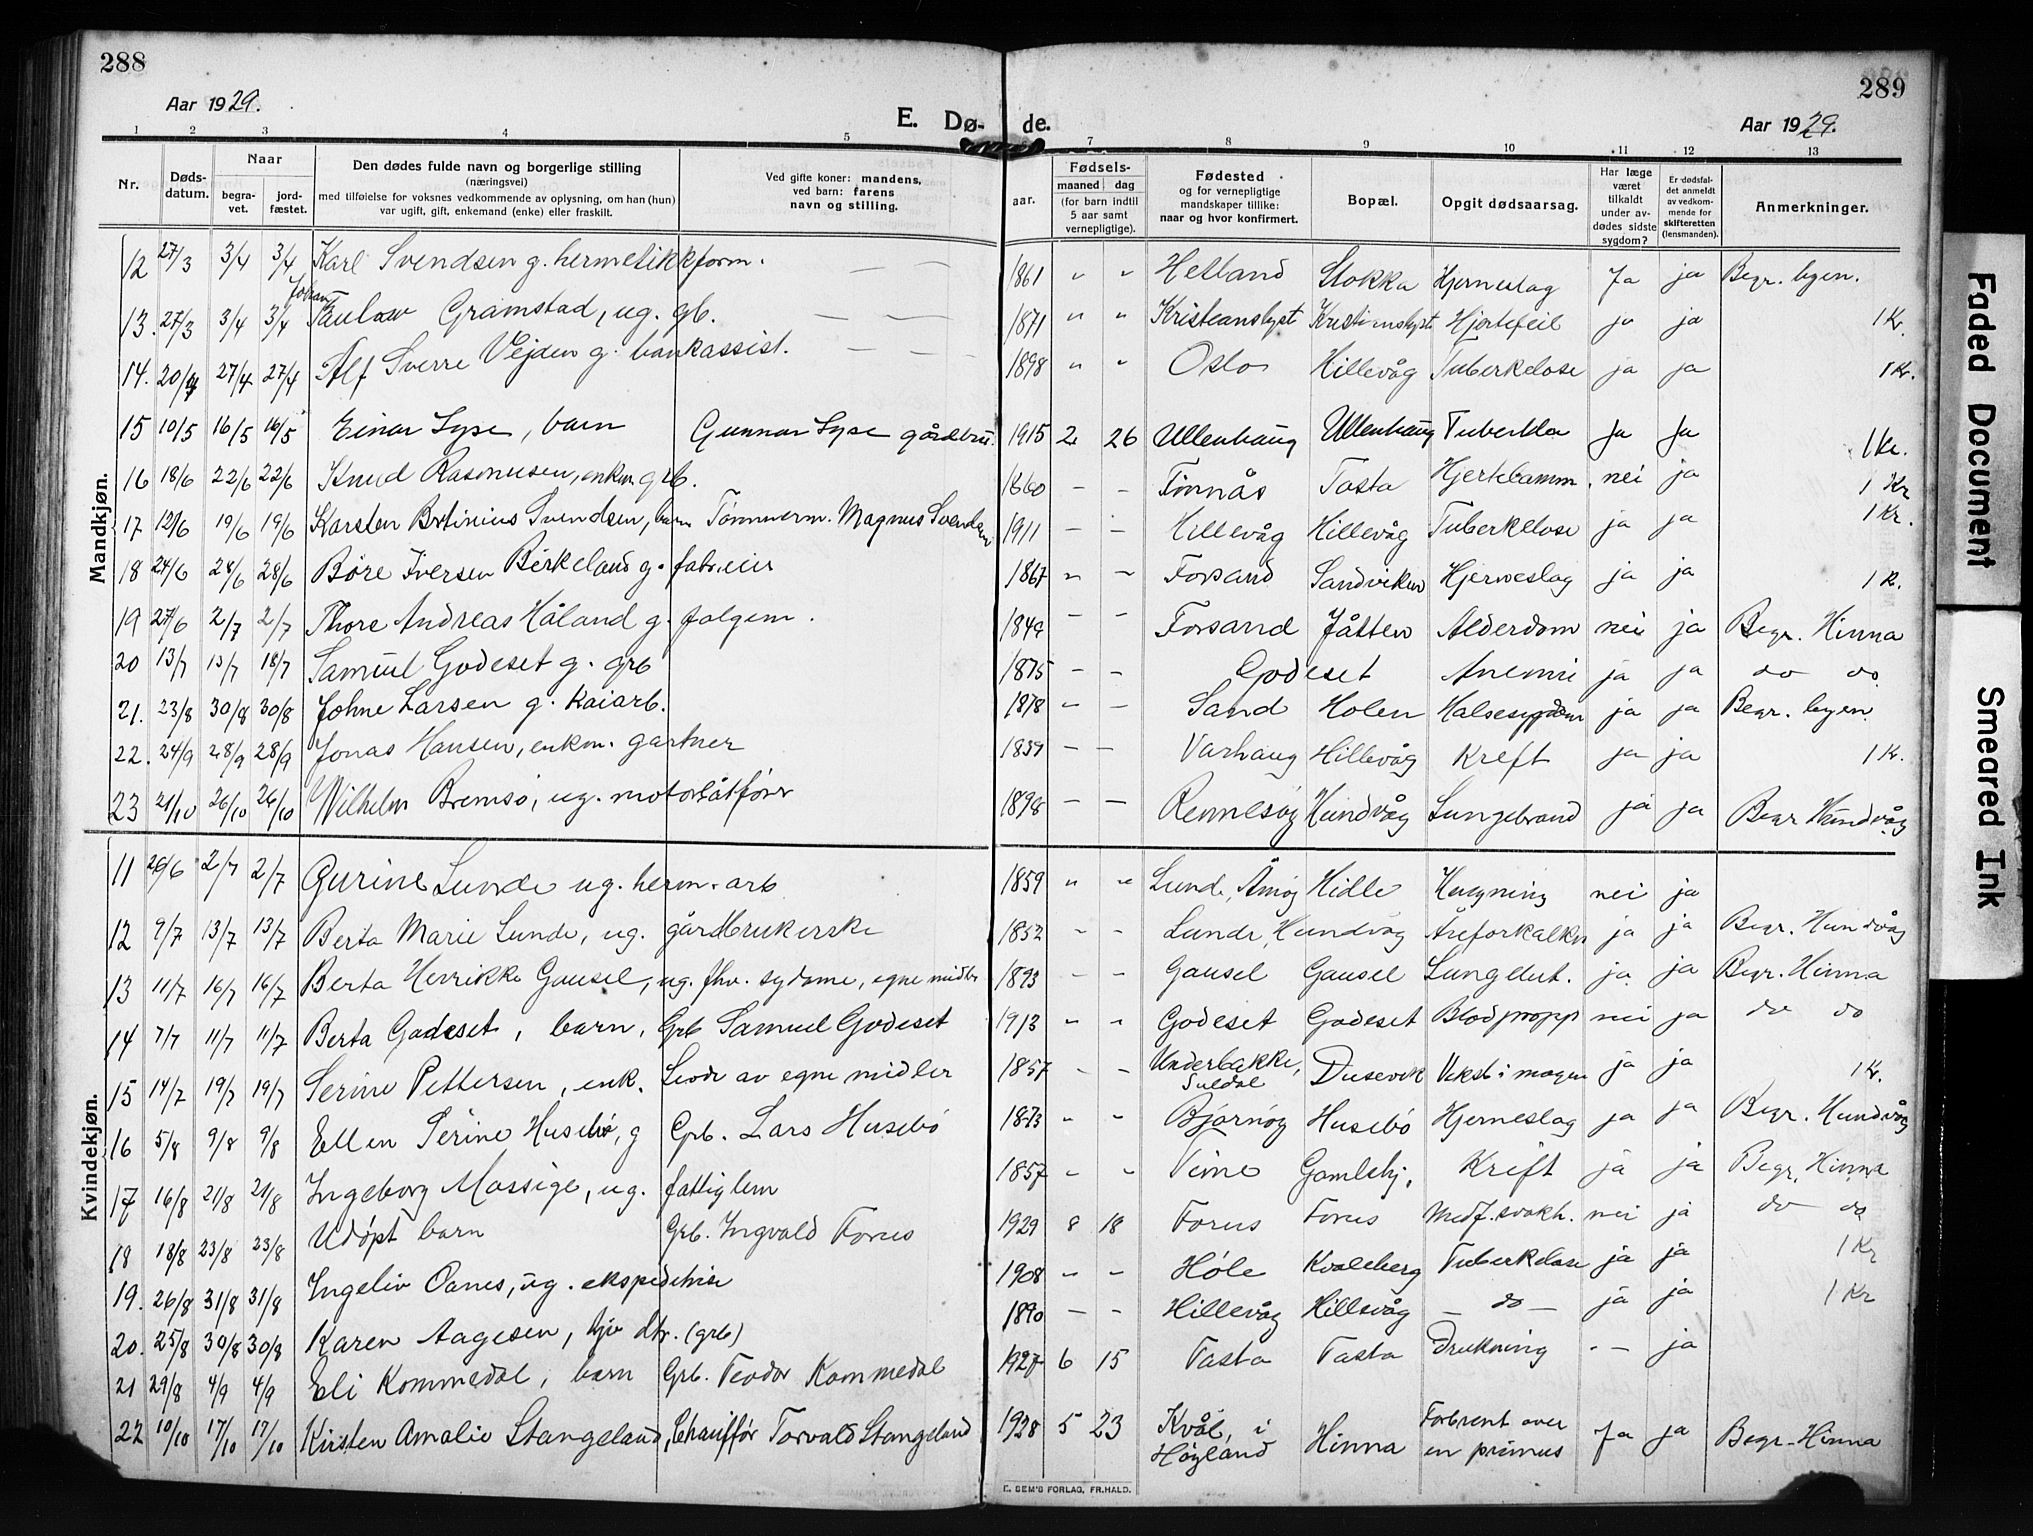 288
289
Aar 1929.
E. Dø- de.
Aar 1929.
1 2 3 4 5 7 8 9 10 11 12 13
Nr.
Døds-
datum.
Naar
begra-
vet.
jord-
fæstet.
Den dødes fulde navn og borgerlige stilling
(næringsvei)
med tilføielse for voksnes vedkommende av oplysning, om han (hun)
var ugift, gift, enkemand (enke) eller fraskilt.
Ved gifte koner: mandens,
ved barn: farens
navn og stilling.
Fødsels-
aar.
maaned dag
(for barn indtil
5 aar samt
vernepligtige).
Fødested
og for vernepligtige
mandskaper tillike:
naar og hvor konfirmert.
Bopæl.
Opgit dødsaarsag.
Har læge
været
tilkaldt
under av-
dødes sidste
sygdom?
Er dødsfal-
det anmeldt
av vedkom-
mende for
skifteretten
(lensmanden).
Anmerkninger.
Mandkjøn.
12 27/3 3/4 3/4 Karl Svendsen g. hermetikkform. — — 1861 " " Hetland Stokka Hjerneslag Ja ja Begr. byen.
13. 27/3 3/4 3/4 Gramstad, ug. gb. — — 1871 " " Kristianslyst Kristianslyst Hjertefeil ja ja 1 Kr.
14. 20/4 27/4 27/4 Alf Sverre Vejden g. bankassist. — — 1898 " " Oslo Hillevåg Tuberkelose ja ja 1 Kr.
15 10/5 16/5 16/5 Einar Lyse, barn Gunnar Lyse gårdbru. 1915 2 26 Ullenhaug Ullenhaug Ja Ja 1 Kr.
16 18/6 22/6 22/6 Knud Rasmussen, enkem grb. 1860 - - Tasta nei ja 1 Kr
17 12/6 19/6 19/6 Karsten Svendsen, barn Tømmerm. Magnus Svendsen 1911 - - Hillevåg Hillevåg Tuberkelose ja ja 1 Kr.
18 24/6 28/6 28/6 Børe Iversen Birkeland g. fabr.eier 1867 " " Forsand Sandviken Hjerneslag ja ja 1 K.
19 27/6 2/7 2/7 Thore Andreas Håland g. folgem. 1849 " " Forsand Jåtten Alderdom nei ja Begr. Hinna
20 13/7 13/7 18/7 Samuel Godeset g. grb 1875 - - Godeset Anemi ja ja do do
21. 23/8 30/8 30/8 Johne Larsen g. kaiarb. 1878 - - Sand Holen Halsesygdom ja ja Begr. byen
22. 24/9 28/9 28/9 Jonas Hansen, enkm. gartner 1839 - - Varhaug Hillevåg Kreft ja ja 1 Kr.
23 21/10 26/10 26/10 Wilhelm Bremsø, ug. motorbåtfører 1898 - - Rennesøy Hundvåg Lungebrand ja ja Begr Hundvåg
Kvindekjøn.
11 26/6 2/7 2/7 Gurine Lunde ug. herm. arb 1859 " " Lunde, Åmøy Hidle nei ja
12 9/7 13/7 13/7 Berta Marie Lunde, ug. gårdbrukerske 1852 - - Lunde, Hundvåg Åreforkalkn ja ja Begr. Hundvåg
13 11/7 16/7 16/7 Berta Henrikke Gausel, ug. fhv. sydame, egne midler 1893 - - Gausel Gausel Lungebet. ja ja Begr. Hinna
14 7/7 11/7 11/7 Berta Godeset, barn, Grb Samuel Godeset 1913 " " Godeset Godeset Blodpropp nei ja do do
15 14/7 19/7 19/7 Serine Pettersen, enk. Levde av egne midler 1857 - - Underbakke,
Suldal Dusevik Vekst i magen ja ja 1 Kr.
16 5/8 9/8 9/8 Ellen Serine Husebø, g Grb. Lars Husebø 1873 " " Bjørnøy Husebø Hjerneslag ja ja Begr. Hundvåg
17 16/8 21/8 21/8 Ingeborg Mossige, ug. fattiglem 1857 " " Time Gamlehj. Kreft ja ja Begr. Hinna
18 18/8 23/8 23/8 Udøpt barn Grb. Ingvald Forus 1929 8 18 Forus Forus Medf. svakh. nei ja do do
19. 26/8 31/8 31/8 Ingeliv Oanes, ug. ekspeditrise 1908 - - Høle Kvaleberg Tuberkelose ja ja 1 Kr
20. 25/8 30/8 30/8 Karen Aagesen, hjv dtr. (grb) 1890 - - Hillevåg Hillevåg - do - ja ja 1 Kr
21 29/8 4/9 4/9 Eli Kommedal, barn Grb. Teodor Kommedal 1927 6 15 Tasta Tasta Drukning - - ja
22 10/10 17/10 17/10 Kirsten Amalie Stangeland, Chauffør Torvald Stangeland 1928 5 23 Kvål, i
Høyland Hinna Forbrent over
en primus Ja ja Begr. Hinna
E. SEM'S FORLAG, FR.HALD.
Faded Document
Smeared Ink